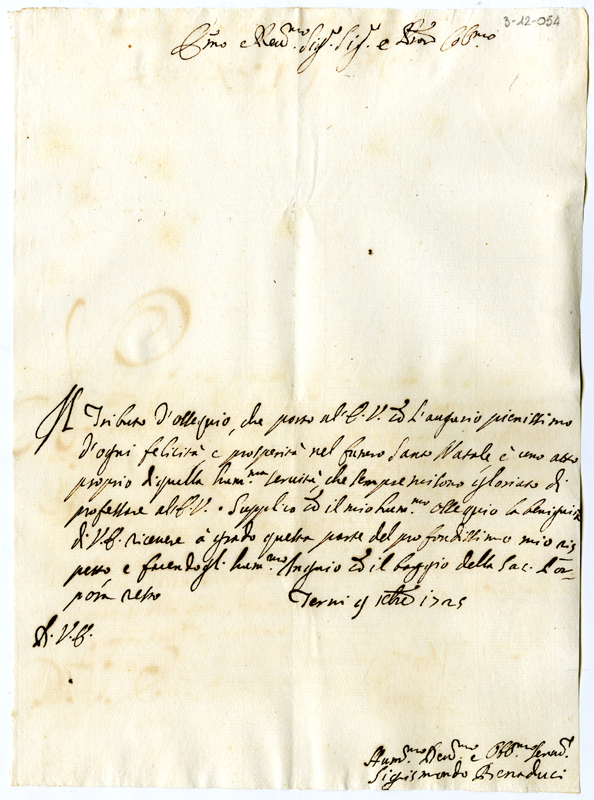 3-12-054
Emo e Reu.mo Sig.r Sig.r e Pron Col.mo
Il Tributo d'ossequio, che porto all'E.V. co l'augurio pienissimo
d'ogni felicità, e prosperità nel futuro Santo Natale è uno atto
proprio di quella hum.ma seruitù, che sempre mi sono gloriato di
professare all'E.V. Supplico co il mio hum.mo ossequio la benignità
di V.E. riceuere à grado questa parte del profondissimo mio ris
petto e facendogli hum.mo Inchino co il baggio della Sac. Por
pora resto Terni 9 Xbre 1725
D. V. E.
Hum.mo Deu.mo e Obb.mo Seru.
Sigismondo Benaduci